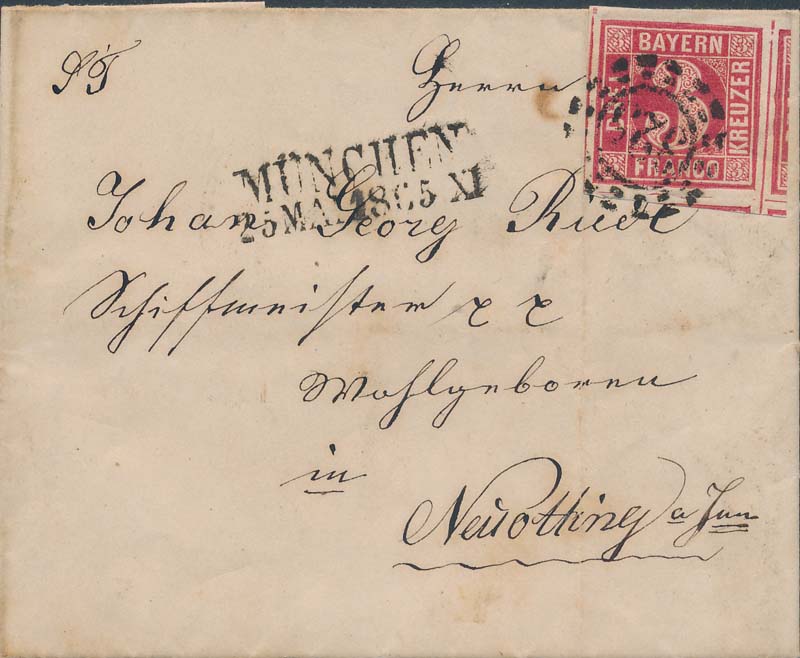 S'T
Herrn
BAYERN
KREUZER
FRANCO
MÜNCHEN
25 MAI 1865 XI
Johan Georg Riedl
Schiffmeister x x
Wohlgeboren
in
Neuötting a Inn